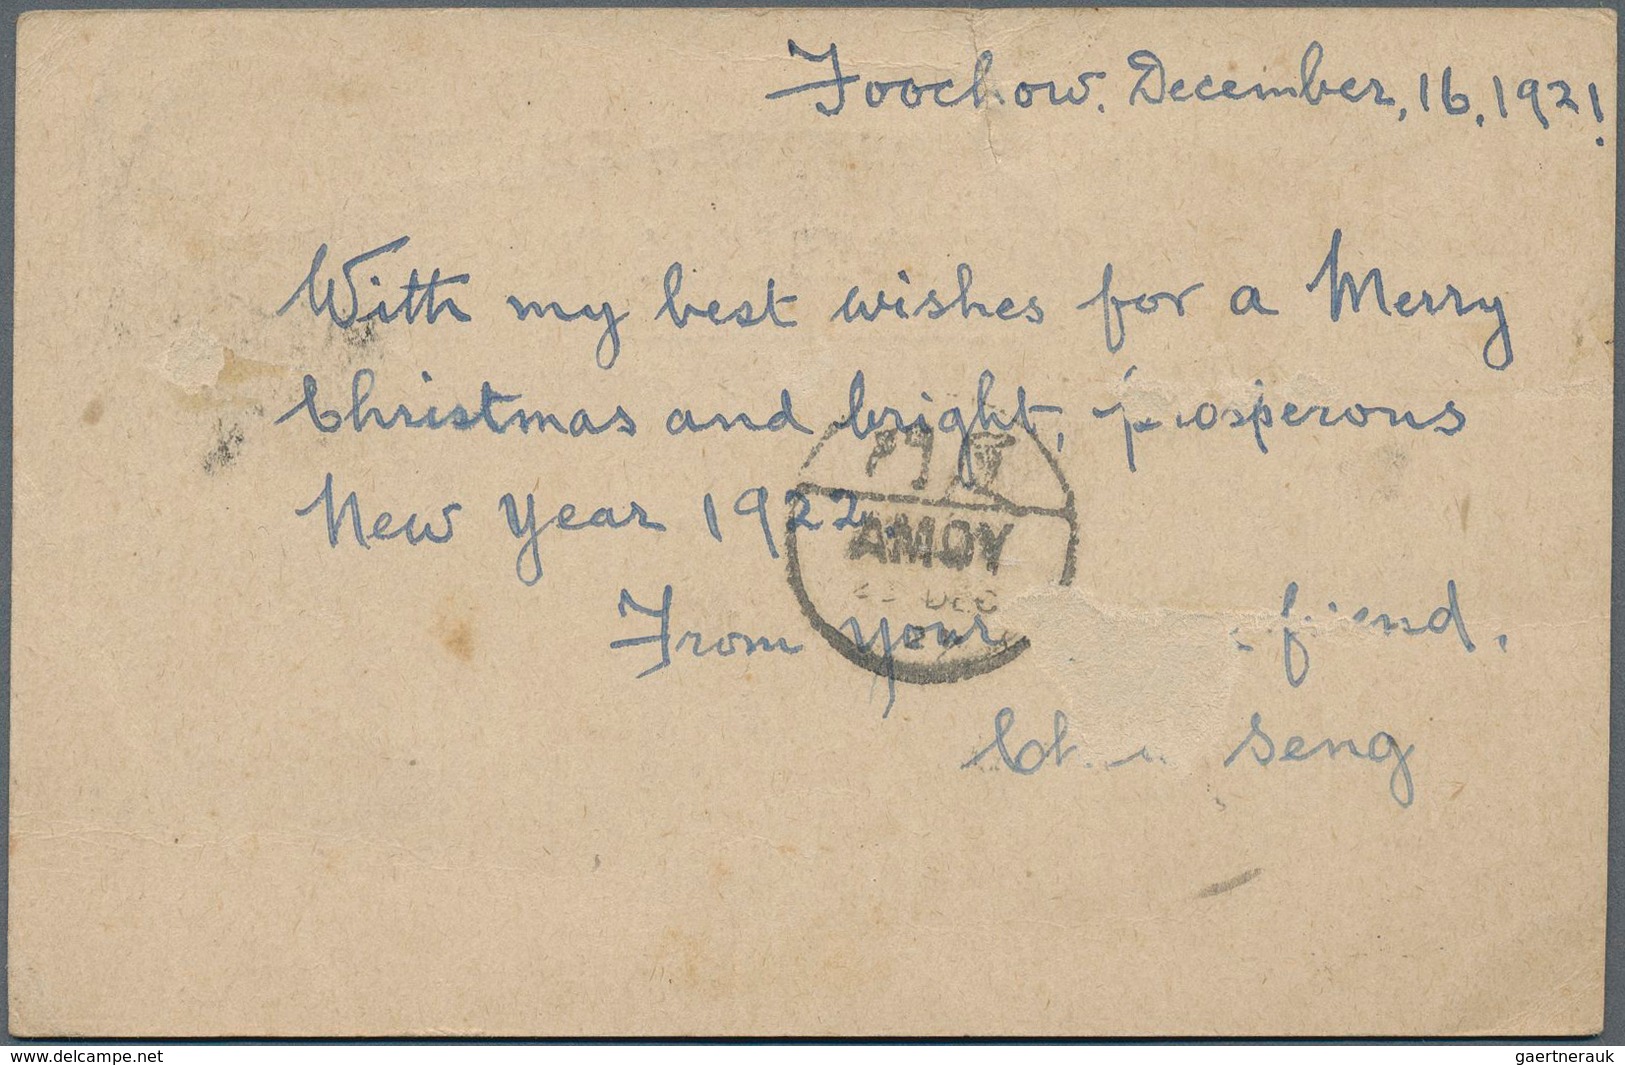 Foochow. December, 16, 1921!
With my best wishes for a Merry
Christmas and bright, prosperous
New Year 1922.
AMOY
DEC
From Your friend.
Seng
www.delcampe.net
gaertnerauk